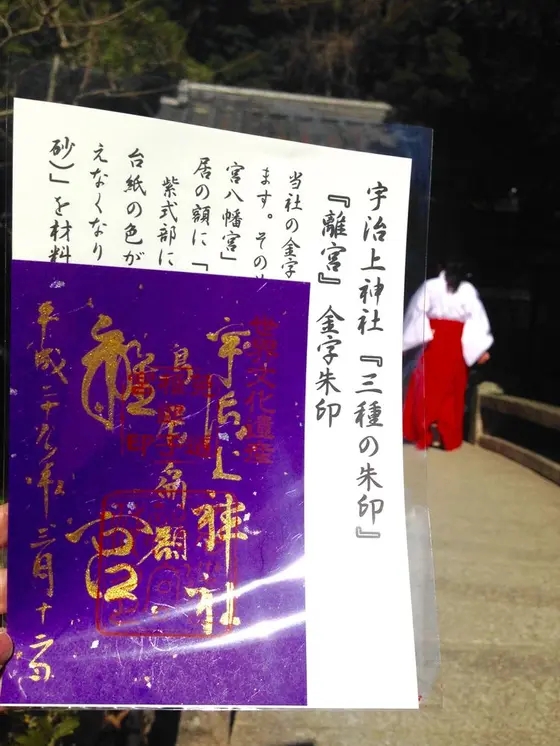 宇治上神社『三種の朱印』
『離宮』金字朱印
当社の金字
ます。その
宮八幡宮」
居の額に「
紫式部に
台紙の色が
えなくなり
砂)」を材料
世界文化遺産
宇治上神社
離宮
平成二十九年三月十